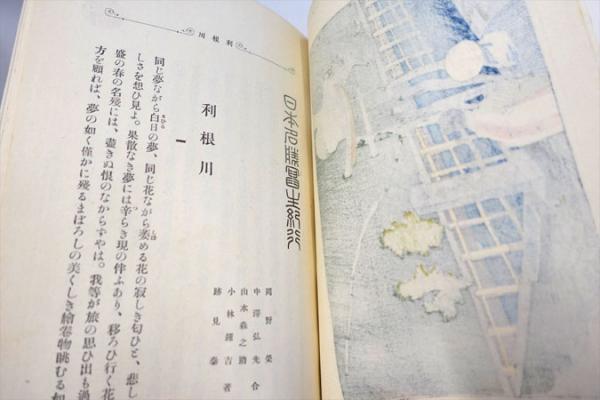 川根利
日本名勝寫生紀行
岡野榮
中澤弘光 合
山本森之助
小林鍾吉 著
跡見泰
利根川
一
同じ夢ながら白日の夢、同じ花ながら萎める花の寂しき匂ひと、悲し
しさを想ひ見よ。果敢なき夢には辛らき現の伴ふあり、移ろひ行く花
盛の春の名殘には、盡きぬ恨のなからずやは。我等が旅の思ひ出も過
方を顧れば、夢の如く僅かに殘るまぼろしの美くしき繪卷物眺むる如